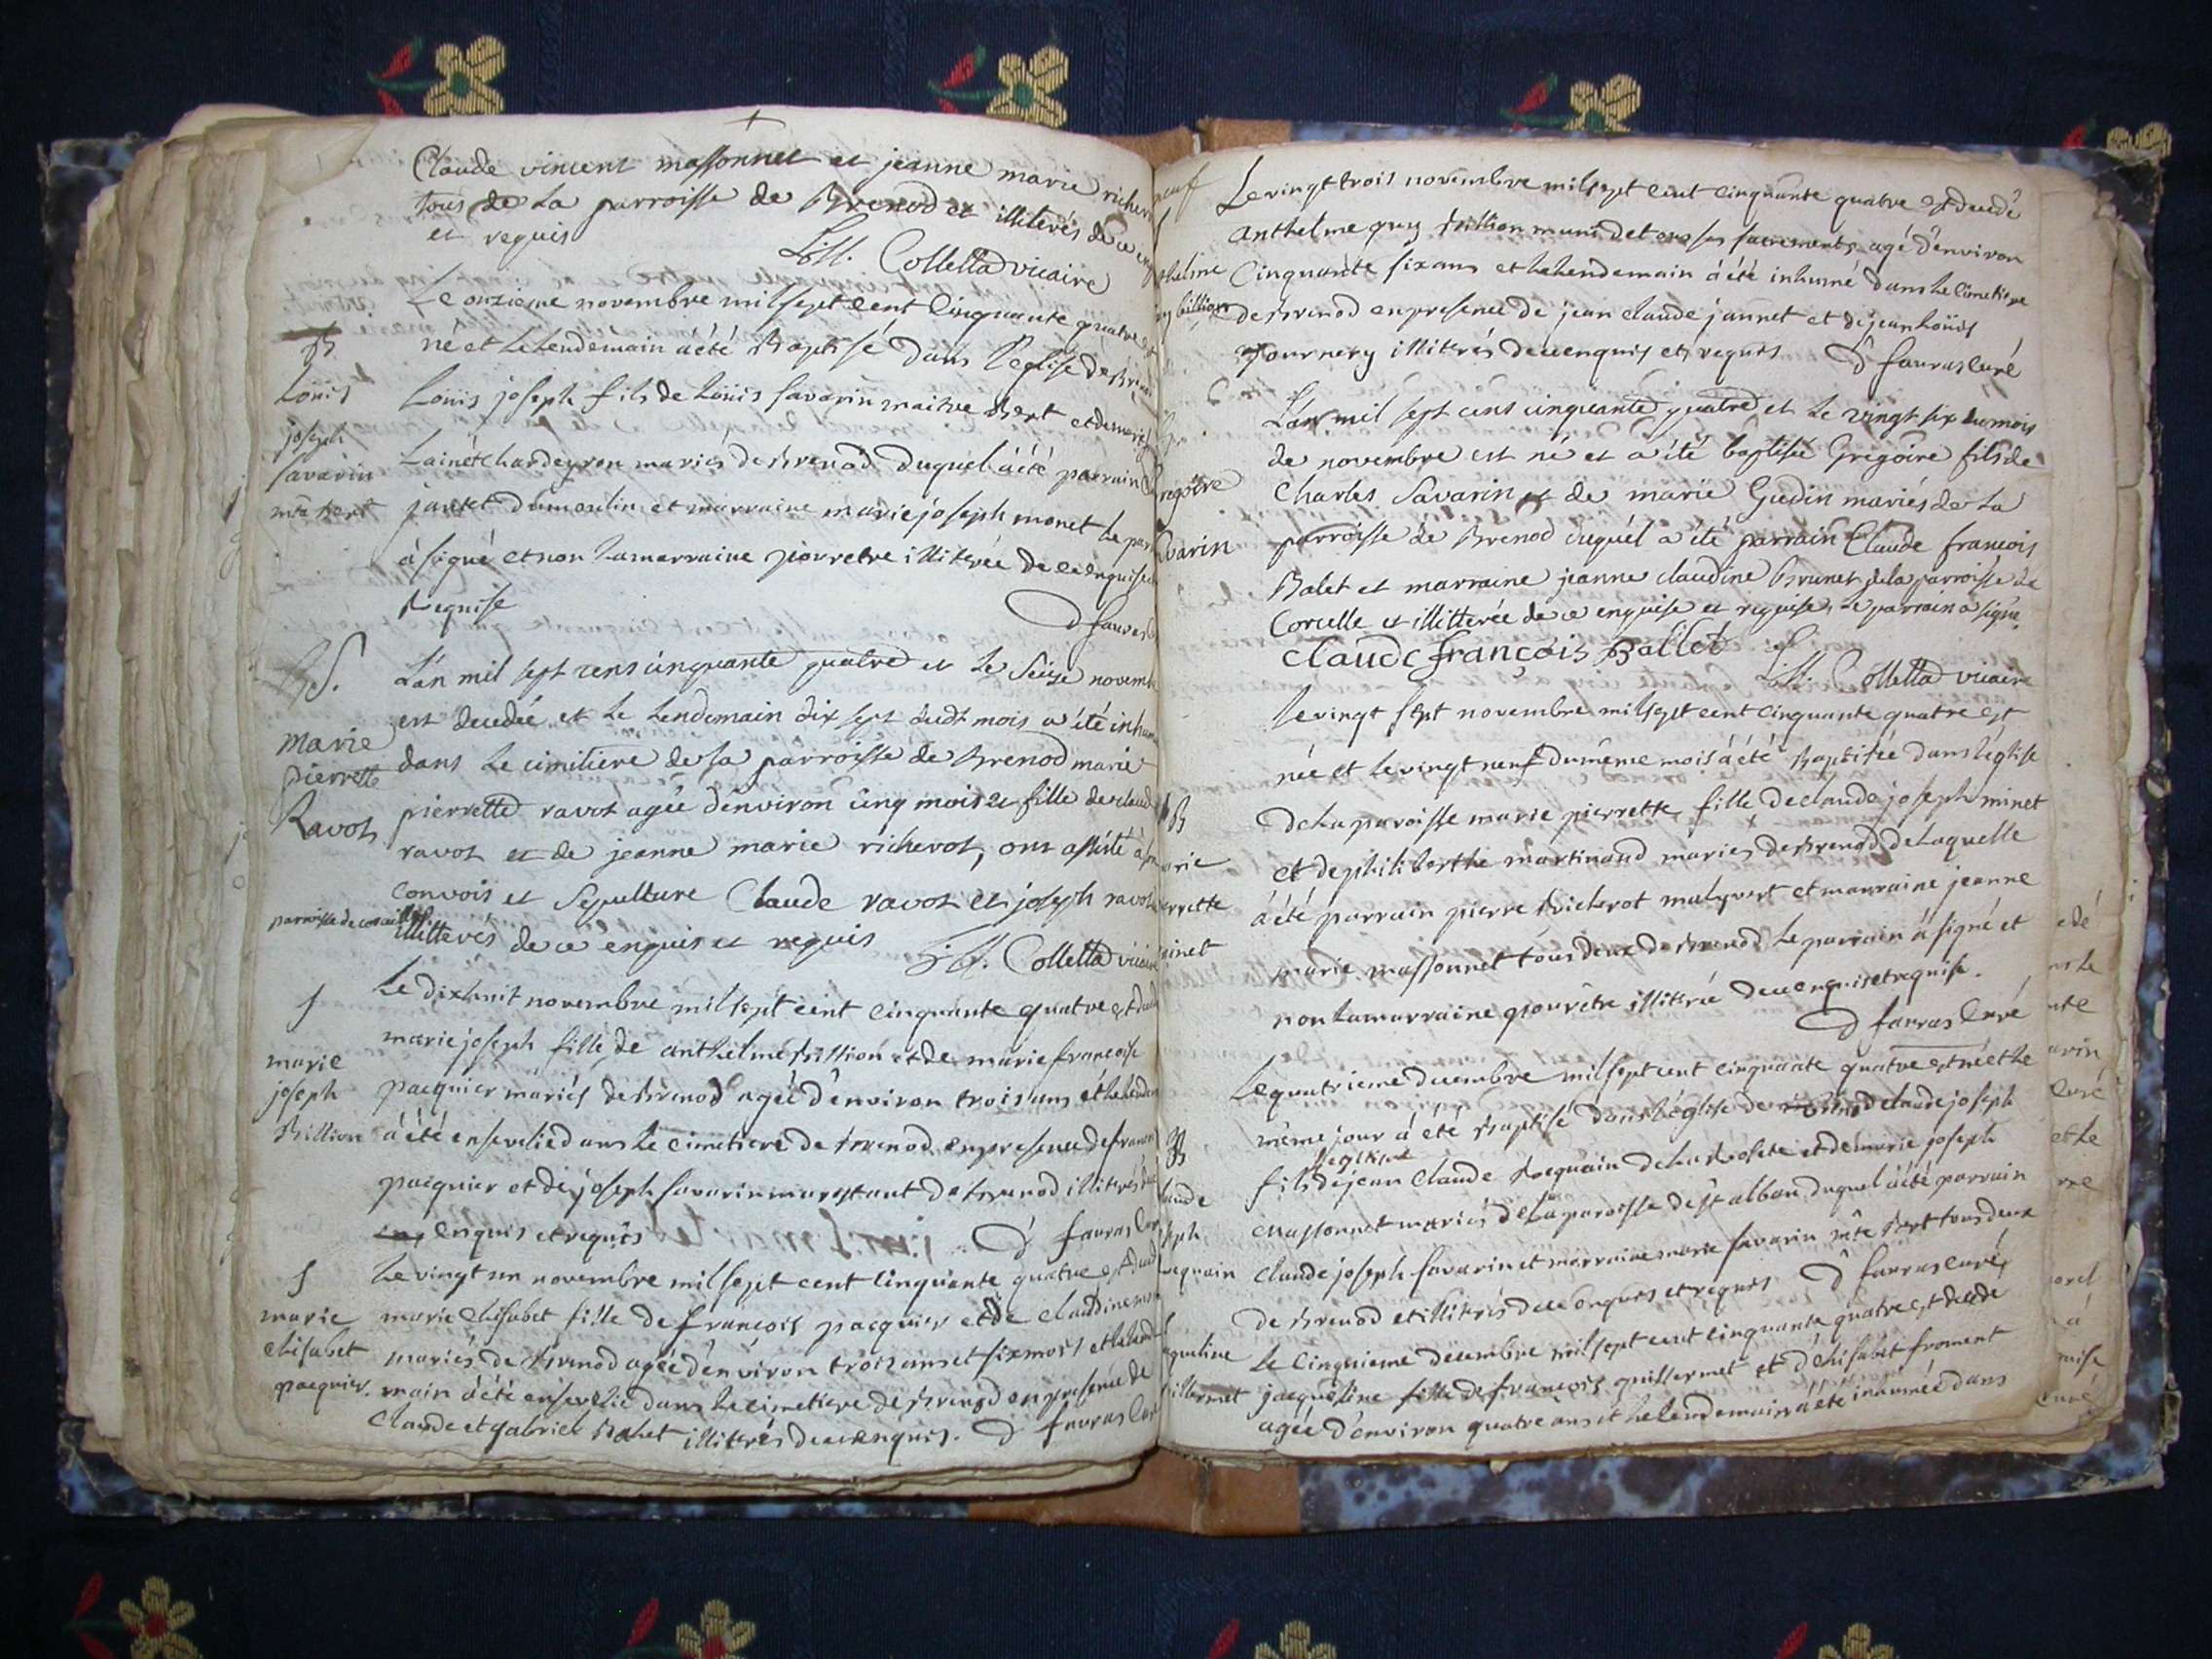 Claude vincent massonnet et jeanne marie richerot
tous de la parroisse de Brenod et illiterés de ce enquis
et requis
Colletta vicaire
Le onzieme novembre mil sept cent cinquante quatre est
né et le lendemain a été Baptisé dans l'eglise de Brenod
B
Loüis
joseph
savarin
Loüis joseph fils de Loüis savarin maitre Bert et de marie
chardeyron mariés de Brenod duquel a été parrain
jantet dumoulin et marraine marie joseph monet le parrain
a signé et non la marraine pour etre illiterée de ce enquise
Requise
D favras
S.
marie
pierrette
Ravot
L'an mil sept cens cinquante quatre et le Seize novembre
est decedée et le lendemain dix sept dudt mois a été inhumée
dans le cimitiere de la parroisse de Brenod marie
pierrette ravot agée d'environ cinq mois fille de claude
ravot et de jeanne marie richerot, ont assisté à son
convois et sepulture Claude ravot et joseph ravot
parroisse de
illitterés de ce enquis et requis
Colletta vicaire
S
marie
joseph
Billion
Le dixhuit novembre mil sept cent cinquante quatre est
marie joseph fille de anthelme Billion et de marie francoise
pacquier mariés de Brenod agée d'environ trois ans et le lendemain
a été ensevelie dans le cimetiere de Brenod en presence de francois
pacquier et de joseph savarin de Brenod illiterés
enquis et requis
D favras
S
marie
elisabet
pacquier.
Le vingt un novembre mil sept cent cinquante quatre est
marie elisabet fille de francois pacquier et de claudine
mariés de Brenod agée d'environ trois ans et six mois et le lende-
main a été ensevelie dans le cimetiere de Brenod en presence de
Claude et gabriel Balet illiterés de ce enquis. D favras
Le vingt trois novembre mil sept cent cinquante quatre est decedé
anthelme guy Billion muni de tous ses sacrements agé d'environ
cinquante six ans et le lendemain a été inhumé dans le cimetiere
de Brenod en presence de jean claude jannet et de jean Loüis
Tournery illiterés de ce enquis et requis D favras curé
L'an mil sept cens cinquante quatre et le vingt six du mois
de novembre est né et a été baptisée Gregoire fils de
Charles Savarin et de marie Gudin mariés de la
parroisse de Brenod duquel a été parrain Claude francois
Balet et marraine jeanne claudine Brunet de la parroisse de
Corcelle et illitterée de ce enquise et requise, le parrain a signé.
Claude françois Ballet
Colletta vicaire
Le vingt sept novembre mil sept cent cinquante quatre est
née et le vingt neuf du même mois a été Baptisée dans l'église
de la paroisse marie pierrette fille de claude joseph minet
et de philiberthe martinand mariés de Brenod de laquelle
a été parrain pierre Richerot malyvert et marraine jeanne
marie massonnet tous deux de Brenod le parrain a signé et
non la marraine pour être illiterée de ce enquise et requise.
D favras curé
Le quatrieme decembre mil sept cent cinquante quatre est né et le
même jour a eté Baptisé dans l'église de Brenod claude joseph
legitime
fils de jean claude Roquain de la et de marie joseph
Massonnet mariés de la paroisse de st alban duquel a été parrain
claude joseph savarin et marraine marie savarin Bert tous deux
de Brenod et illiterés de ce enquis et requis D favras curé
Le cinquieme decembre mil sept cent cinquante quatre est decede
jacqueline fille de francois guillermet et d'elisabet froment
agée d'environ quatre ans et le lendemain a été inhumée dans